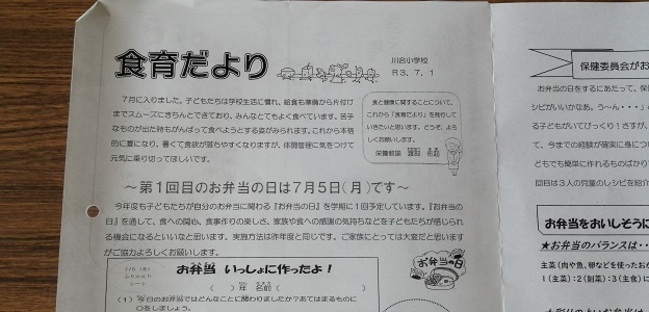 食育だより
川合小学校
R3.7.1
7月に入りました。子どもたちは学校生活に慣れ、給食も準備から片付け
までスムーズにきちんとできており、みんなとてもよく食べています。苦手
なものが出た時もがんばって食べようとする姿がみられます。これから本格
的に夏になり、暑くて食欲が落ちやすくなりますが、体調管理に気をつけて
元気に乗り切ってほしいです。
食と健康に関することについて、
これから「食育だより」を発行して
いきたいと思います。どうぞ、よろ
しくお願いします。
栄養教諭
～第1回目のお弁当の日は7月5日(月)です～
今年度も子どもたちが自分のお弁当に関わる『お弁当の日』を学期に1回予定しています。『お弁当の
日』を通して、食への関心、食事作りの楽しさ、家族や食への感謝の気持ちなどを子どもたちが感じられ
る機会になるといいなと思います。実施方法は昨年度と同じです。ご家庭にとっては大変だと思います
がご協力よろしくお願いします。
お弁当の日
お弁当 いっしょに作ったよ!
( )年 名前( )
(1) 今日のお弁当ではどんなことに関わりましたか?あてはまるものに
○をしましょう。
保健委員会がお
お弁当の日をするにあたって、保
シピがいいかなあ。う～ん・・・」
る子どもがいてびっくり!さすが、
て、今までの経験が確実に身につ
どもでも簡単に作れるものばか
回目は3人の児童のレシピを紹介
お弁当をおいしそうに
★お弁当のバランスは・・
主菜(肉や魚、卵などを使ったおか
1(主菜):2(副菜):3(主食)に